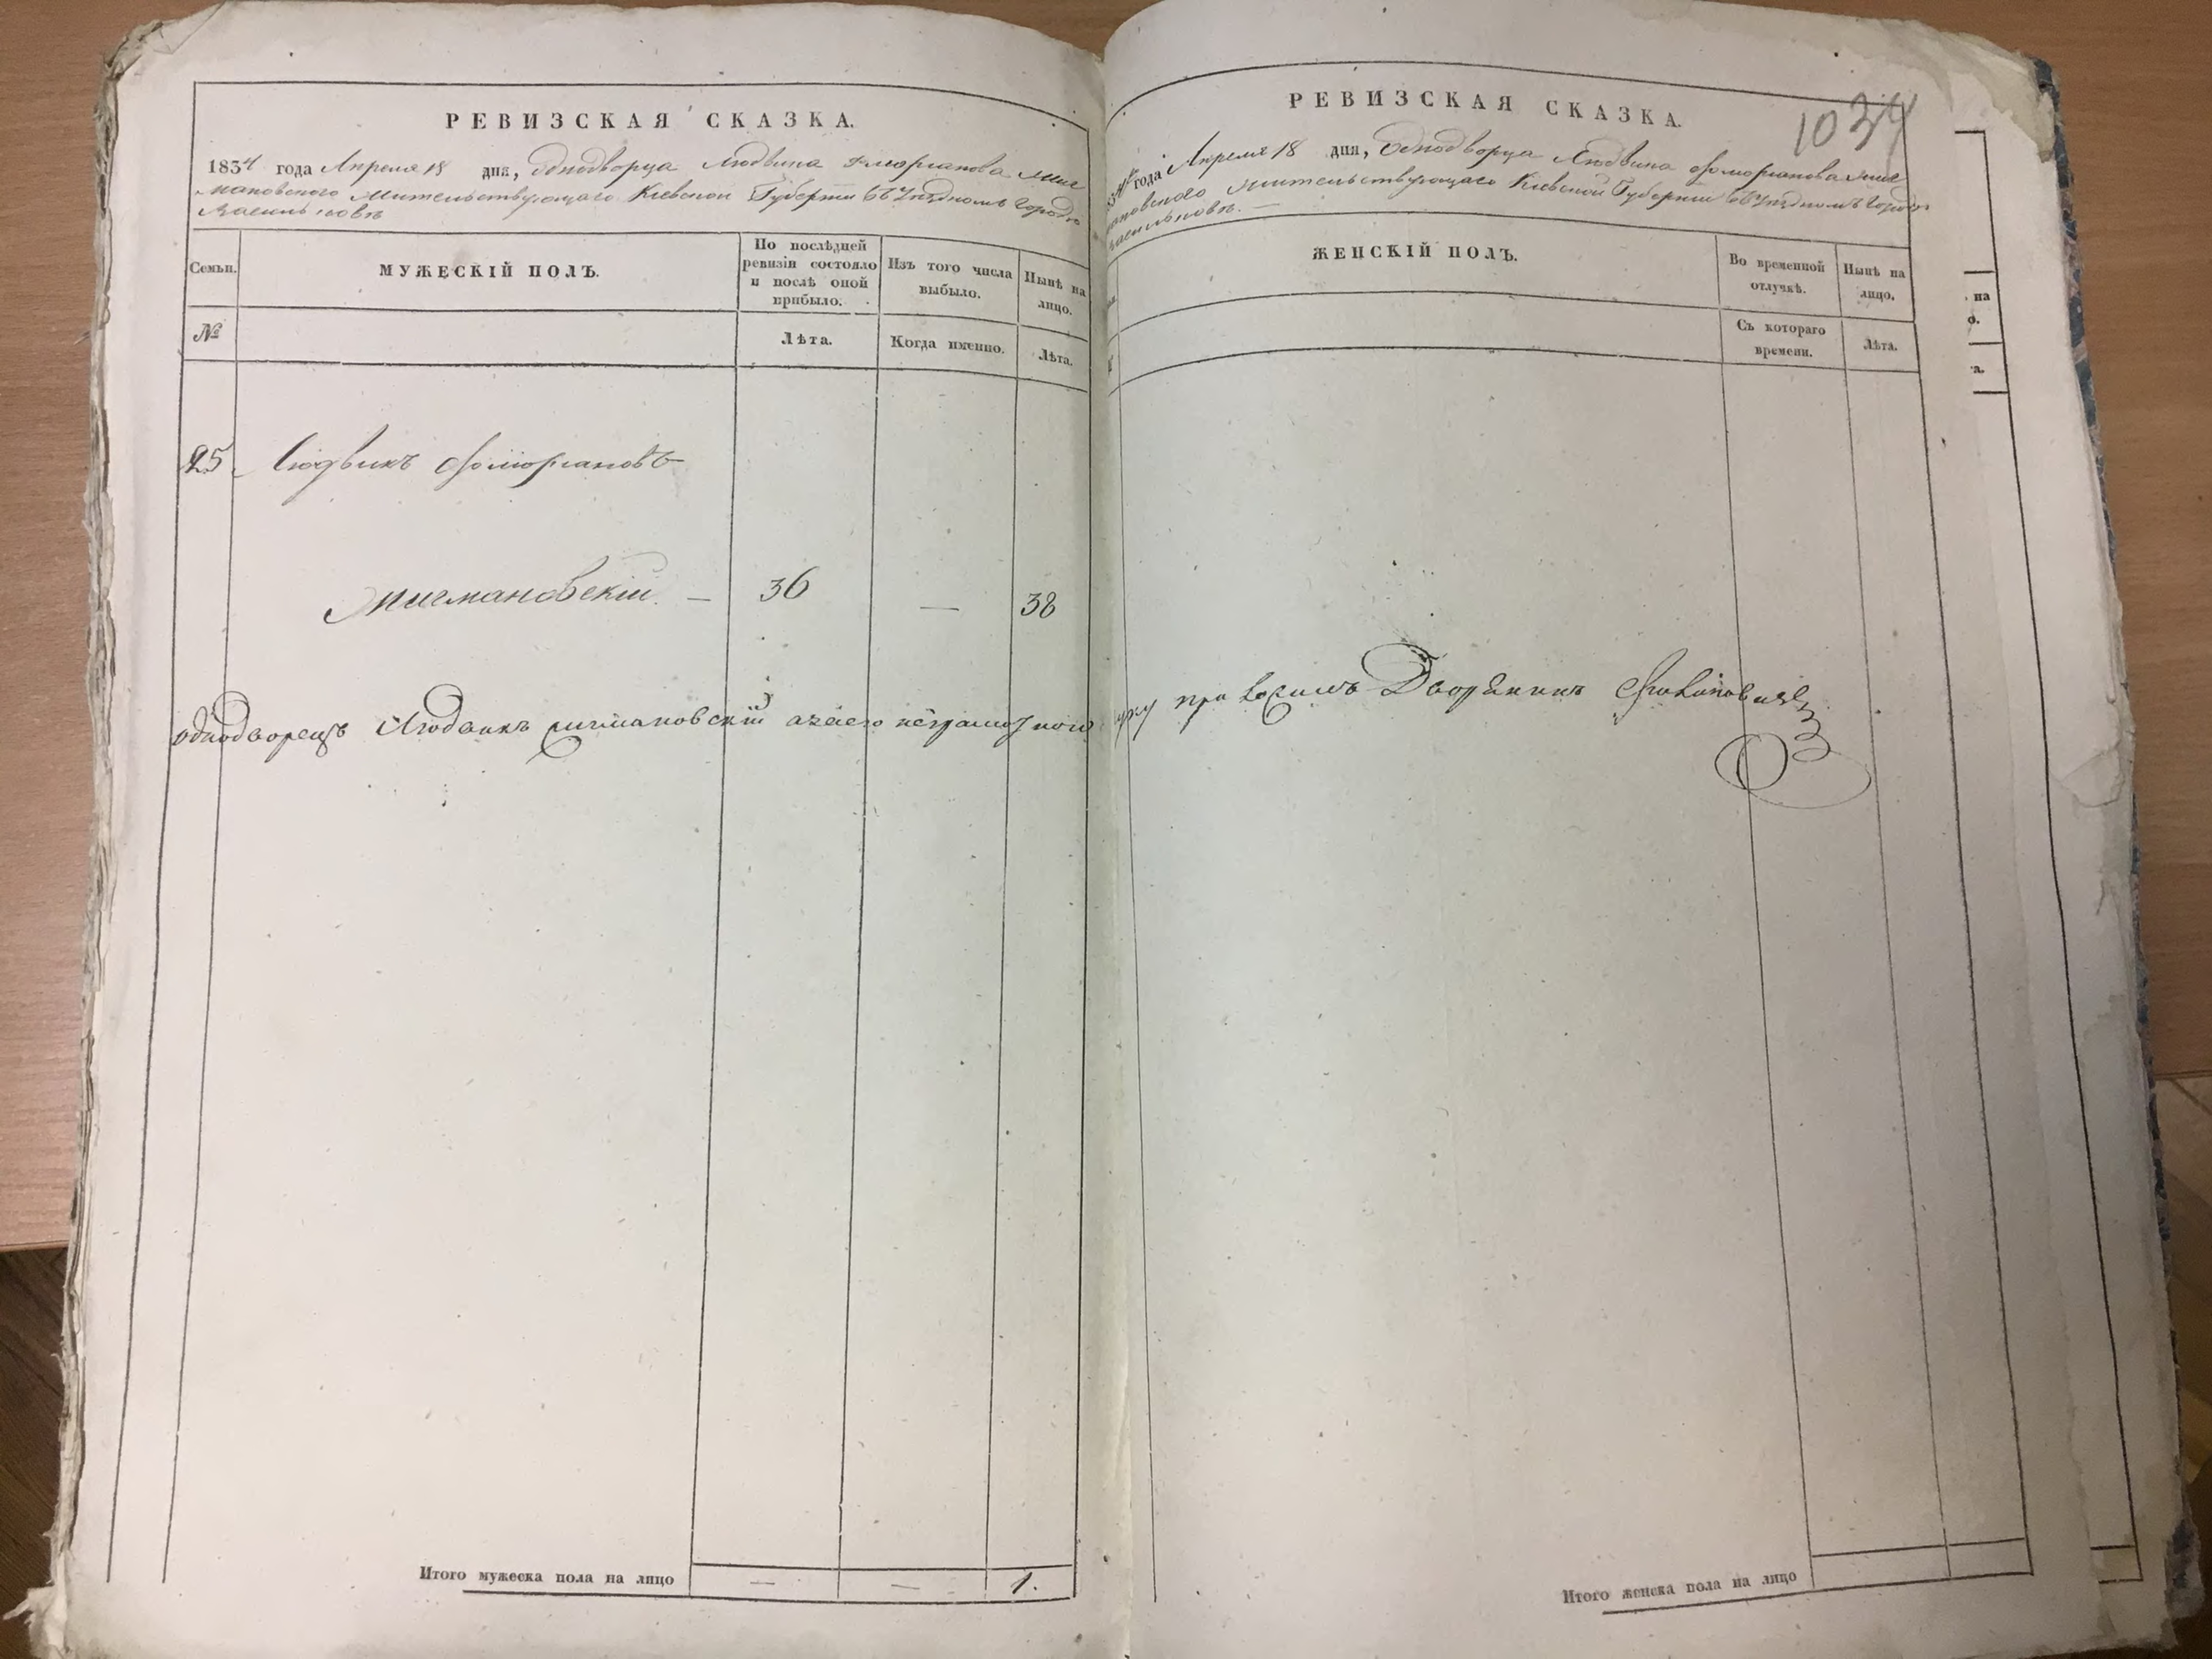 РЕВИЗСКАЯ СКАЗКА.
1834 года Апреля 18 дня, Однодворца Людвика Флориянова
мановского жительствующаго Киевской Губернии въ Уездномъ городе
Василькове
Семьи.
МУЖЕСКІЙ ПОЛЪ.
По послѣдней ревизіи состояло и послѣ оной прибыло.
Изъ того числа выбыло.
Нынѣ на лицо.
№
Лѣта.
Когда именно.
Лѣта.
25
Людвикъ Флорiяновъ
36
—
38
однодворецъ Людвикъ азаего неграмотного
Итого мужеска пола на лицо
—
—
1.
РЕВИЗСКАЯ СКАЗКА.
1034
года Апреля 18 дня, Однодворца Людвика Флориянова
мановского жительствующаго Киевской Губернии въ Уездномъ городе
Василькове. —
ЖЕНСКІЙ ПОЛЪ.
Во временной отлучкѣ.
Нынѣ на лицо.
Съ котораго времени.
Лѣта.
Дворянинъ
Итого женска пола на лицо
на
о.
а.